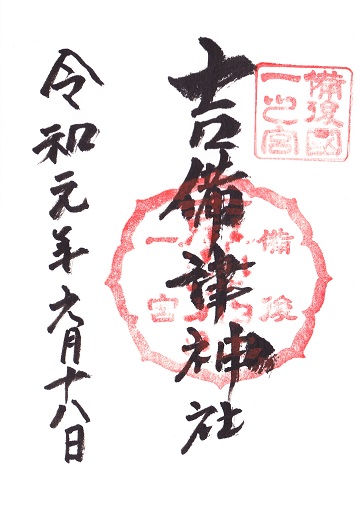 備後國
一之宮
吉備津神社
備後
一宮
令和元年九月十八日